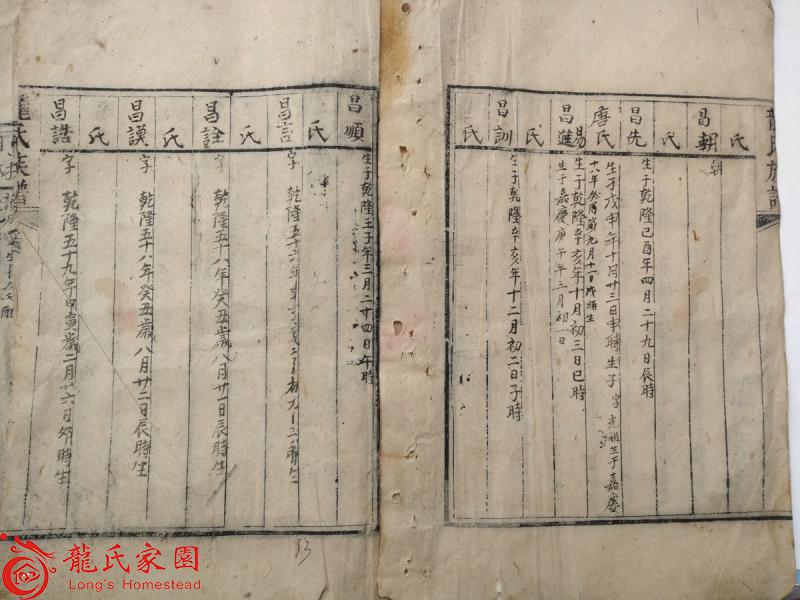 龍氏族譜
氏
昌朝
朝
氏
昌先
生于乾隆己酉年四月二十九日辰時
唐氏
生于戊申年十月廿三日申時生子
字光祖生于嘉慶
十八年癸酉歲九月十一日戌時生
昌進
易
生于乾隆辛亥年十月初三日巳時
生于嘉慶庚午年三月初一日
氏
昌訓
生于乾隆辛亥年十二月初二日子時
氏
昌順
生于乾隆壬子年三月二十四日午時
氏
昌言
字
乾隆五十六年
氏
昌詮
字
乾隆五十八年癸丑歲八月廿一日辰時生
氏
昌謨
字
乾隆五十八年癸丑歲八月廿二日辰時生
氏
昌誥
字
乾隆五十九年甲寅歲二月廿六日卯時生
龍氏族譜
83
龍氏家園
Long's Homestead